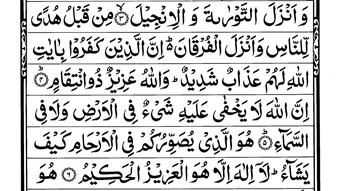 وَ اَنْزَلَ التَّوْرٰىةَ وَ الْاِنْجِیْلَ ﴿۳﴾ مِنْ قَبْلُ هُدًی
لِّلنَّاسِ وَاَنْزَلَ الْفُرْقَانَ ؕ اِنَّ الَّذِیْنَ كَفَرُوْا بِاٰیٰتِ
اللهِ لَهُمْ عَذَابٌ شَدِیْدٌ ؕ وَاللهُ عَزِیْزٌ ذُوانْتِقَامٍ ﴿۴﴾
اِنَّ اللهَ لَا یَخْفٰی عَلَیْهِ شَیْءٌ فِی الْاَرْضِ وَلَا فِی
السَّمَآءِ ﴿۵﴾ هُوَ الَّذِیْ یُصَوِّرُكُمْ فِی الْاَرْحَامِ كَیْفَ
یَشَآءُ ؕ لَاۤ اِلٰهَ اِلَّا هُوَ الْعَزِیْزُ الْحَكِیْمُ ﴿۶﴾ هُوَ